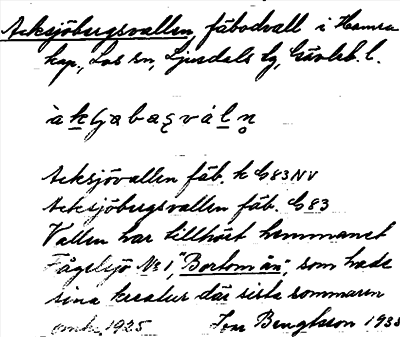 Acksjöbergsvallen, fäbodvall i Hamra
kap., Los sn, Ljusdals tg, Gävleb. l.
àkʃabaʂválṇ
Acksjövallen fäb. k G83NV
Acksjöbergsvallen fäb. G83
Vallen har tillhört hemmanet
Fågelsjö No 1, "Bortom ån", som hade
sina kreatur där sista sommaren
omkr. 1925 Bengtsson 1935